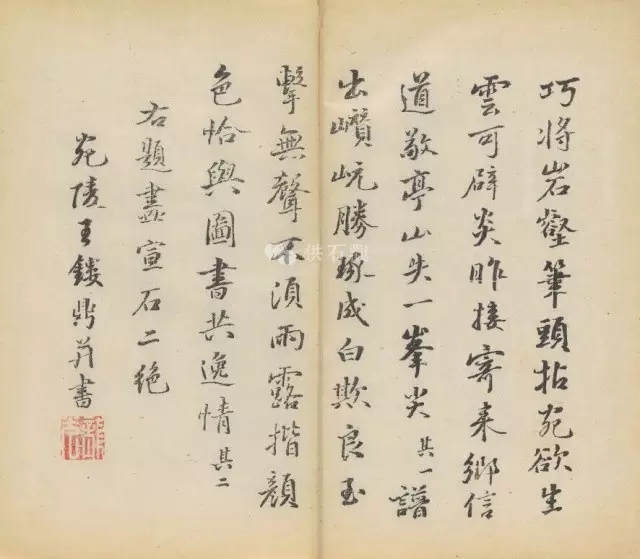 巧將岩壑筆頭拈宛欲生
雲可辟炎昨接寄來鄉信
道敬亭山失一拳尖 其一 譜
出巑岏勝琢成白欺良玉
擊無聲不須雨露揩顏
色恰與圖書共逸情 其二
右題畫宣石二絕
宛陵王鏤鼎并書
供石觀